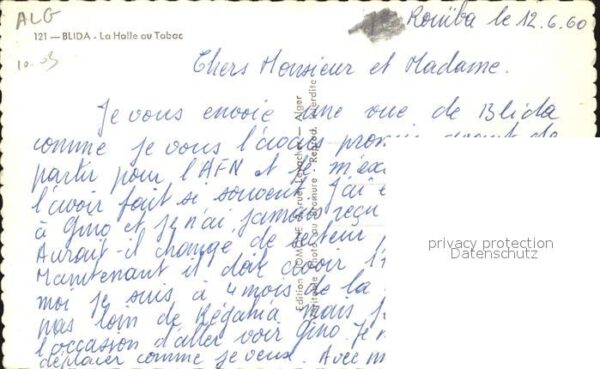 ALG
121 — BLIDA - La Halle au Tabac
10.03
Rouïba le 12.6.60
Chers Monsieur et Madame.
Je vous envoie une vue de Blida
comme je vous l'avais promis avant de
partir pour l'AFN et je m'ex
l'avoir fait si souvent. J'ai
à Gino et je n'ai jamais reçu
Aurait-il changé de secteur
Maintenant il doit avoir
moi je suis à 4 mois de la
pas loin de Régahia mais
l'occasion d'aller voir Gino. Je
déplacer comme je veux. Avec
privacy protection
Datenschutz
Alger
Reprod. interdite